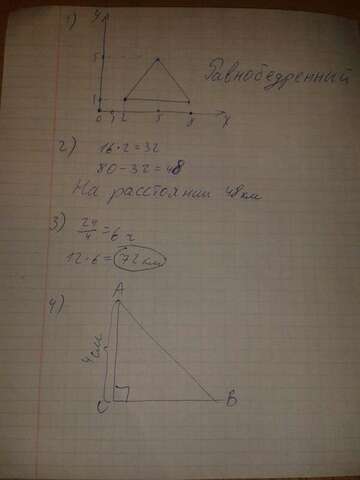 1)
y
5
1
0 1 2 5 8 x
Равнобедренный
2) 16·2=32
80-32=48
На расстоянии 48 км
3) 24/4=6 ч
12·6=72 км
4)
A
4 см
C B